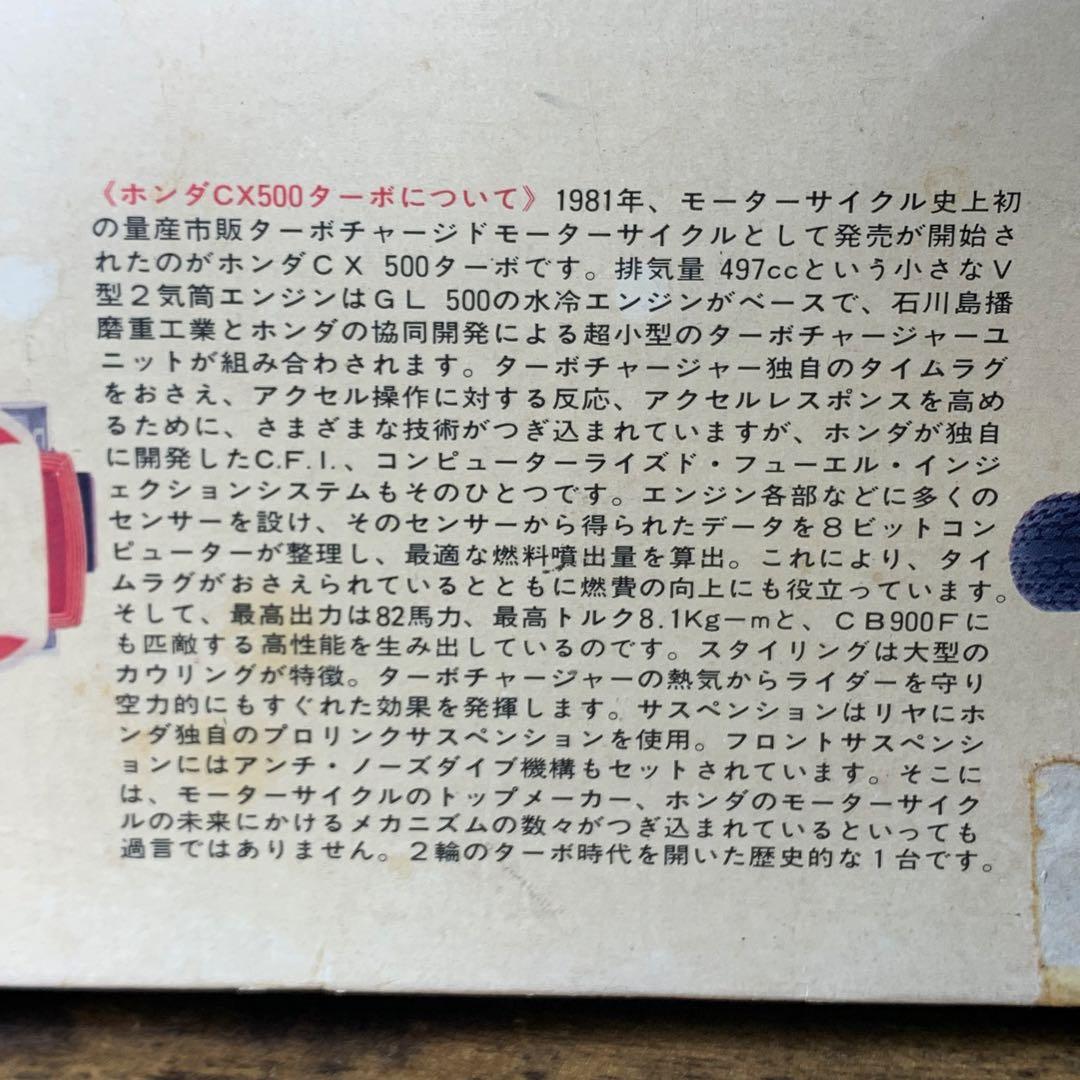 《ホンダCX500ターボについて》1981年、モーターサイクル史上初
の量産市販ターボチャージドモーターサイクルとして発売が開始さ
れたのがホンダCX 500ターボです。排気量 497ccという小さなV
型2気筒エンジンはGL 500の水冷エンジンがベースで、石川島播
磨重工業とホンダの協同開発による超小型のターボチャージャーユ
ニットが組み合わされます。ターボチャージャー独自のタイムラグ
をおさえ、アクセル操作に対する反応、アクセルレスポンスを高め
るために、さまざまな技術がつぎ込まれていますが、ホンダが独自
に開発したC.F.I.、コンピューターライズド・フューエル・インジ
ェクションシステムもそのひとつです。エンジン各部などに多くの
センサーを設け、そのセンサーから得られたデータを8ビットコン
ピューターが整理し、最適な燃料噴出量を算出。これにより、タイ
ムラグがおさえられているとともに燃費の向上にも役立っています。
そして、最高出力は82馬力、最高トルク8.1Kg－mと、CB900Fに
も匹敵する高性能を生み出しているのです。スタイリングは大型の
カウリングが特徴。ターボチャージャーの熱気からライダーを守り
空力的にもすぐれた効果を発揮します。サスペンションはリヤにホ
ンダ独自のプロリンクサスペンションを使用。フロントサスペンシ
ョンにはアンチ・ノーズダイブ機構もセットされています。そこに
は、モーターサイクルのトップメーカー、ホンダのモーターサイク
ルの未来にかけるメカニズムの数々がつぎ込まれているといっても
過言ではありません。2輪のターボ時代を開いた歴史的な1台です。